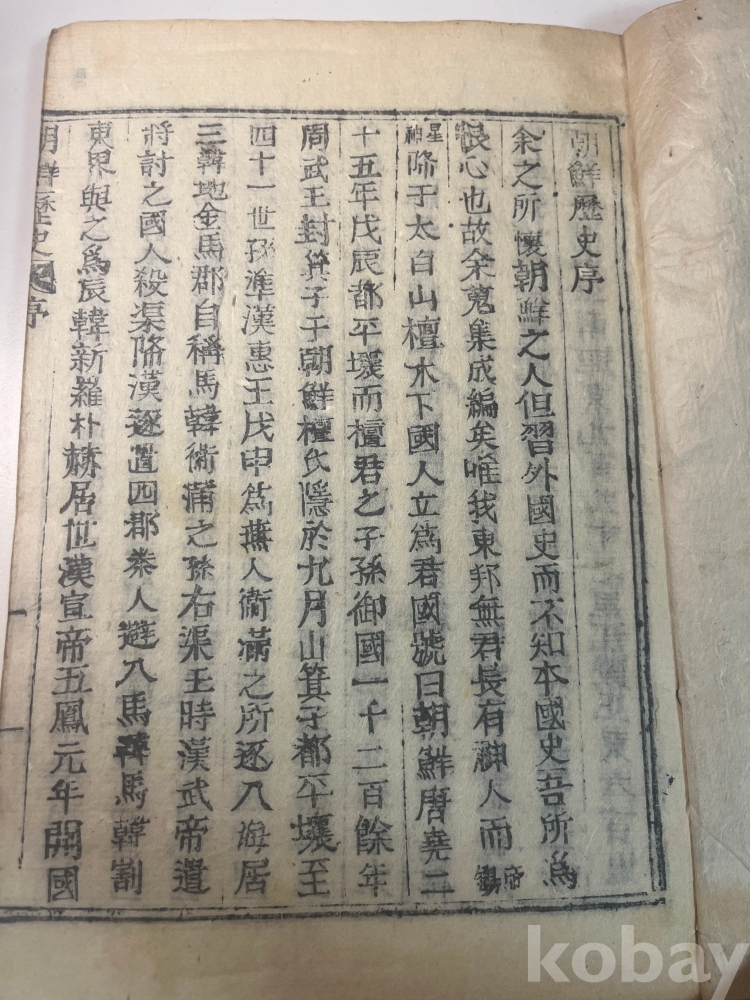 朝鮮歷史序
余之所懷朝鮮之人但習外國史而不知本國史吾所爲
恨心也故余蒐集成編矣唯我東邦無君長有神人而帝
星神降于太白山檀木下國人立爲君國號曰朝鮮唐堯二
十五年戊辰都平壤而檀君之子孫御國一千二百餘年
周武王封箕子于朝鮮檀氏隱於九月山箕子都平壤至
四十一世孫準漢惠王戊申爲燕人衛滿之所逐入海居
三韓地金馬郡自稱馬韓衛滿之孫右渠王時漢武帝遣
將討之國人殺渠降漢逐置四郡秦人避入馬韓馬韓割
東界與之爲辰韓新羅朴赫居世漢宣帝五鳳元年開國
朝鮮歷史 序
kobay